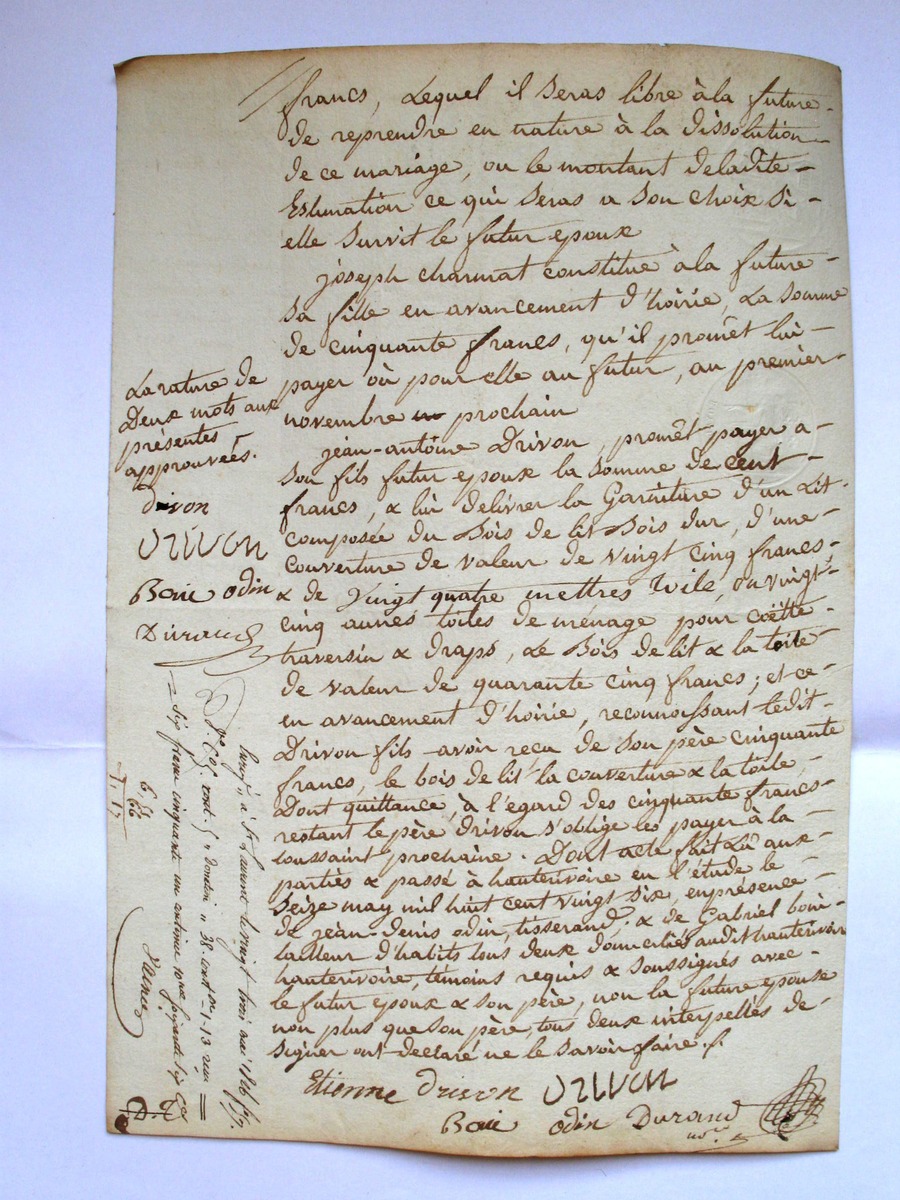 francs, Lequel il seras libre à la future
de reprendre en nature à la dissolution
de ce mariage, ou le montant deladite
Estimation ce qui seras a son choix si
elle survit le futur epoux
joseph charmat constitue à la future
sa fille en avancement d'hoirie, La somme
de cinquante francs, qu'il promêt lui
payer où pour elle au futur, au premier
novembre prochain
jean-antoine Drivon, promêt payer a
son fils futur epoux la somme de cent
francs, & lui delivrer la Garniture d'un Lit
composée du Bois de lit Bois dur, d'une
couverture de valeur de vingt cinq francs,
& de vingt quatre mettres toile, ou vingt
cinq aunes toiles de ménage pour coëtte
traversin & draps, Le Bois de lit & la toile
de valeur de quarante cinq francs; et ce
en avancement d'hoirie, reconnoissant ledit
Drivon fils avoir reçu de son père cinquante
francs, le bois de lit la couverture & la toile
Dont quittance, à l'egard des cinquante francs
restant le père drivon s'oblige les payer à la
toussaint prochaine. Dont acte fait Lû aux
partiés & passé à hauterivoire en l'étude le
seize may mil huit cent vingt six, en présence
de jean-denis odin, tisserand, & de Gabriel boin
tailleur d'habits tous deux domiciliés audit hauterivoir
hauterivoire, témoins requis & soussignés avec
le futur epoux & son père, non la future epouse
non plus que son père, tous deux interpellés de
signer ont declaré ne le savoir faire.
Etienne drivon DRIVON
Boin odin Durand
La rature de
Deux mots aux
présentes
approuvées.
drivon
DRIVON
Boin odin
Durand